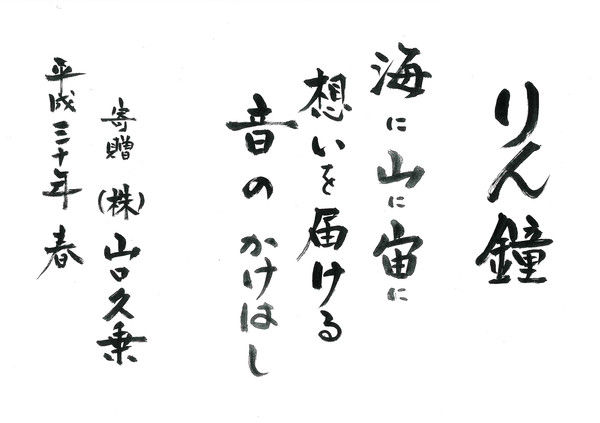 りん鐘
海に山に宙に
想いを届ける
音のかけはし
寄贈 (株)山口久乗
平成三十年 春